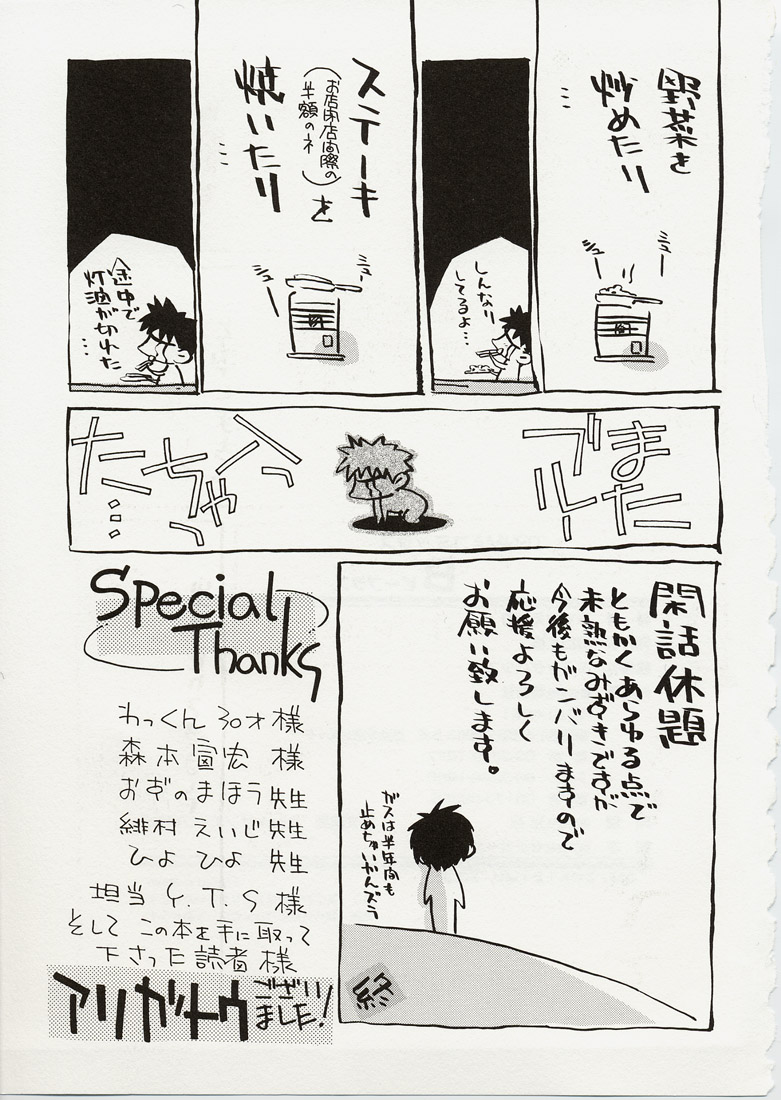 野菜を
炒めたり
…
ジュー
ジュー
しんなり
してるよ…
ステーキ
(お店閉店間際の
半額のネ)を
焼いたり
…
ジュー
ジュー
途中で
灯油が切れた
…
また
ブルー
入っ
ちゃっ
た…
閑話休題
ともかくあらゆる点で
未熟なみずきですが
今後もガンバリますので
応援よろしく
お願い致します。
ガスは半年間も
止めちゃいかんズラ
終
Special
Thanks
わっくん30才様
森本宣宏様
おぎのまほう先生
緋村えいじ先生
ひよひよ先生
担当Y.T.S様
そしてこの本を手に取って
下さった読者様
アリガトウございました!